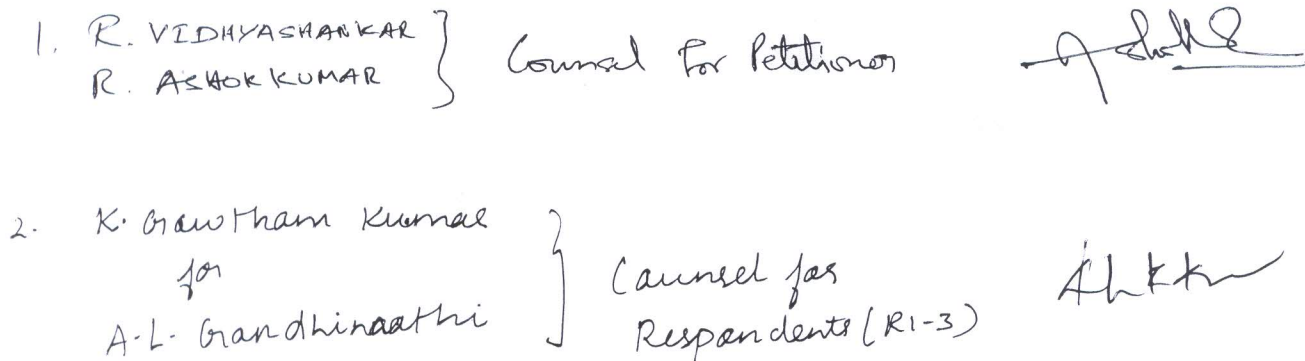 1. R. VIDHYASHANKAR
R. ASHOK KUMAR
Counsel For Petitioner
2. K. Gawtham Kumar
for
A.L. Gandhinaathi
Counsel for
Respondents (R1-3)